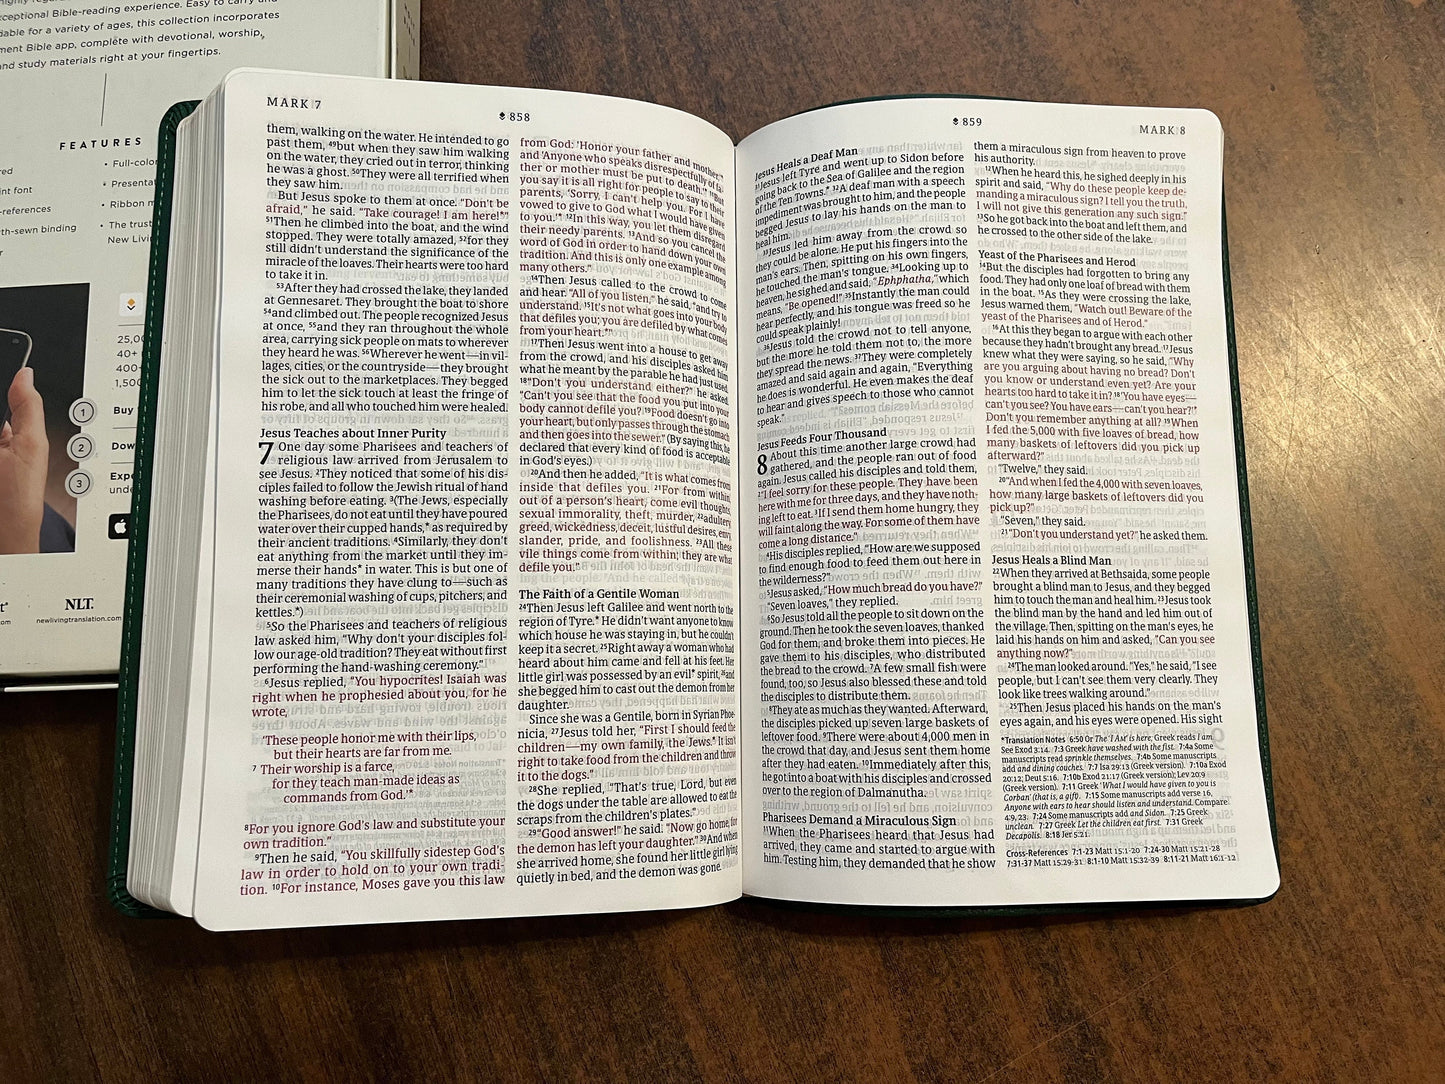 highly rega
xceptional Bible-reading experience. Easy to carry and
dable for a variety of ages, this collection incorporates
ment Bible app, complete with devotional, worship,
and study materials right at your fingertips.
FEATURES
red
int font
-references
th-sewn binding
• Full-color
• Presentat
• Ribbon m
• The trust
New Livin
25,0
40+
400+
1,500
1
Buy
2
Dow
3
Expe
unde
NLT.
newlivingtranslation.com
MARK 7
858
them, walking on the water. He intended to go
past them, 49but when they saw him walking
on the water, they cried out in terror, thinking
he was a ghost. 50They were all terrified when
they saw him.
But Jesus spoke to them at once. “Don’t be
afraid,” he said. “Take courage! I am here!*”
51Then he climbed into the boat, and the wind
stopped. They were totally amazed, 52for they
still didn’t understand the significance of the
miracle of the loaves. Their hearts were too hard
to take it in.
53After they had crossed the lake, they landed
at Gennesaret. They brought the boat to shore
54and climbed out. The people recognized Jesus
at once, 55and they ran throughout the whole
area, carrying sick people on mats to wherever
they heard he was. 56Wherever he went—in vil-
lages, cities, or the countryside—they brought
the sick out to the marketplaces. They begged
him to let the sick touch at least the fringe of
his robe, and all who touched him were healed.
Jesus Teaches about Inner Purity
7 One day some Pharisees and teachers of
religious law arrived from Jerusalem to
see Jesus. 2They noticed that some of his dis-
ciples failed to follow the Jewish ritual of hand
washing before eating. 3(The Jews, especially
the Pharisees, do not eat until they have poured
water over their cupped hands,* as required by
their ancient traditions. 4Similarly, they don’t
eat anything from the market until they im-
merse their hands* in water. This is but one of
many traditions they have clung to—such as
their ceremonial washing of cups, pitchers, and
kettles.*)
5So the Pharisees and teachers of religious
law asked him, “Why don’t your disciples fol-
low our age-old tradition? They eat without first
performing the hand-washing ceremony.”
6Jesus replied, “You hypocrites! Isaiah was
right when he prophesied about you, for he
wrote,
‘These people honor me with their lips,
but their hearts are far from me.
7 Their worship is a farce,
for they teach man-made ideas as
commands from God.’*
8For you ignore God’s law and substitute your
own tradition.”
9Then he said, “You skillfully sidestep God’s
law in order to hold on to your own tradi-
tion. 10For instance, Moses gave you this law
from God: ‘Honor your father and mother,’*
and ‘Anyone who speaks disrespectfully of fa-
ther or mother must be put to death.’* 11But
you say it is all right for people to say to their
parents, ‘Sorry, I can’t help you. For I have
vowed to give to God what I would have given
to you.’* 12In this way, you let them disregard
their needy parents. 13And so you cancel the
word of God in order to hand down your own
tradition. And this is only one example among
many others.”
14Then Jesus called to the crowd to come
and hear. “All of you listen,” he said, “and try to
understand. 15It’s not what goes into your body
that defiles you; you are defiled by what comes
from your heart.*”
17Then Jesus went into a house to get away
from the crowd, and his disciples asked him
what he meant by the parable he had just used.
18“Don’t you understand either?” he asked.
“Can’t you see that the food you put into your
body cannot defile you? 19Food doesn’t go into
your heart, but only passes through the stomach
and then goes into the sewer.” (By saying this, he
declared that every kind of food is acceptable
in God’s eyes.)
20And then he added, “It is what comes from
inside that defiles you. 21For from within,
out of a person’s heart, come evil thoughts,
sexual immorality, theft, murder, 22adultery,
greed, wickedness, deceit, lustful desires, envy,
slander, pride, and foolishness. 23All these
vile things come from within; they are what
defile you.”
The Faith of a Gentile Woman
24Then Jesus left Galilee and went north to the
region of Tyre.* He didn’t want anyone to know
which house he was staying in, but he couldn’t
keep it a secret. 25Right away a woman who had
heard about him came and fell at his feet. Her
little girl was possessed by an evil* spirit, 26and
she begged him to cast out the demon from her
daughter.
Since she was a Gentile, born in Syrian Phoe-
nicia, 27Jesus told her, “First I should feed the
children—my own family, the Jews.* It isn’t
right to take food from the children and throw
it to the dogs.”
28She replied, “That’s true, Lord, but even
the dogs under the table are allowed to eat the
scraps from the children’s plates.”
29“Good answer!” he said. “Now go home, for
the demon has left your daughter.” 30And when
she arrived home, she found her little girl lying
quietly in bed, and the demon was gone.
859
MARK 8
Jesus Heals a Deaf Man
31Jesus left Tyre and went up to Sidon before
going back to the Sea of Galilee and the region
of the Ten Towns.* 32A deaf man with a speech
impediment was brought to him, and the people
begged Jesus to lay his hands on the man to
heal him.
33Jesus led him away from the crowd so
they could be alone. He put his fingers into the
man’s ears. Then, spitting on his own fingers,
he touched the man’s tongue. 34Looking up to
heaven, he sighed and said, “Ephphatha,” which
means, “Be opened!” 35Instantly the man could
hear perfectly, and his tongue was freed so he
could speak plainly!
36Jesus told the crowd not to tell anyone,
but the more he told them not to, the more
they spread the news. 37They were completely
amazed and said again and again, “Everything
he does is wonderful. He even makes the deaf
to hear and gives speech to those who cannot
speak.”
Jesus Feeds Four Thousand
8 About this time another large crowd had
gathered, and the people ran out of food
again. Jesus called his disciples and told them,
2“I feel sorry for these people. They have been
here with me for three days, and they have noth-
ing left to eat. 3If I send them home hungry, they
will faint along the way. For some of them have
come a long distance.”
4His disciples replied, “How are we supposed
to find enough food to feed them out here in
the wilderness?”
5Jesus asked, “How much bread do you have?”
“Seven loaves,” they replied.
6So Jesus told all the people to sit down on the
ground. Then he took the seven loaves, thanked
God for them, and broke them into pieces. He
gave them to his disciples, who distributed
the bread to the crowd. 7A few small fish were
found, too, so Jesus also blessed these and told
the disciples to distribute them.
8They ate as much as they wanted. Afterward,
the disciples picked up seven large baskets of
leftover food. 9There were about 4,000 men in
the crowd that day, and Jesus sent them home
after they had eaten. 10Immediately after this,
he got into a boat with his disciples and crossed
over to the region of Dalmanutha.
Pharisees Demand a Miraculous Sign
11When the Pharisees heard that Jesus had
arrived, they came and started to argue with
him. Testing him, they demanded that he show
them a miraculous sign from heaven to prove
his authority.
12When he heard this, he sighed deeply in his
spirit and said, “Why do these people keep de-
manding a miraculous sign? I tell you the truth,
I will not give this generation any such sign.”
13So he got back into the boat and left them, and
he crossed to the other side of the lake.
Yeast of the Pharisees and Herod
14But the disciples had forgotten to bring any
food. They had only one loaf of bread with them
in the boat. 15As they were crossing the lake,
Jesus warned them, “Watch out! Beware of the
yeast of the Pharisees and of Herod.”
16At this they began to argue with each other
because they hadn’t brought any bread. 17Jesus
knew what they were saying, so he said, “Why
are you arguing about having no bread? Don’t
you know or understand even yet? Are your
hearts too hard to take it in? 18‘You have eyes—
can’t you see? You have ears—can’t you hear?’*
Don’t you remember anything at all? 19When
I fed the 5,000 with five loaves of bread, how
many baskets of leftovers did you pick up
afterward?”
“Twelve,” they said.
20“And when I fed the 4,000 with seven loaves,
how many large baskets of leftovers did you
pick up?”
“Seven,” they said.
21“Don’t you understand yet?” he asked them.
Jesus Heals a Blind Man
22When they arrived at Bethsaida, some people
brought a blind man to Jesus, and they begged
him to touch the man and heal him. 23Jesus took
the blind man by the hand and led him out of
the village. Then, spitting on the man’s eyes, he
laid his hands on him and asked, “Can you see
anything now?”
24The man looked around. “Yes,” he said, “I see
people, but I can’t see them very clearly. They
look like trees walking around.”
25Then Jesus placed his hands on the man’s
eyes again, and his eyes were opened. His sight
*Translation Notes 6:50 Or The ‘I Am’ is here; Greek reads I am.
See Exod 3:14. 7:3 Greek have washed with the fist. 7:4a Some
manuscripts read sprinkle themselves. 7:4b Some manuscripts
add and dining couches. 7:7 Isa 29:13 (Greek version). 7:10a Exod
20:12; Deut 5:16. 7:10b Exod 21:17 (Greek version); Lev 20:9
(Greek version). 7:11 Greek ‘What I would have given to you is
Corban’ (that is, a gift). 7:15 Some manuscripts add verse 16,
Anyone with ears to hear should listen and understand. Compare
4:9, 23. 7:24 Some manuscripts add and Sidon. 7:25 Greek
unclean. 7:27 Greek Let the children eat first. 7:31 Greek
Decapolis. 8:18 Jer 5:21.
Cross-References 7:1-23 Matt 15:1-20 7:24-30 Matt 15:21-28
7:31-37 Matt 15:29-31 8:1-10 Matt 15:32-39 8:11-21 Matt 16:1-12